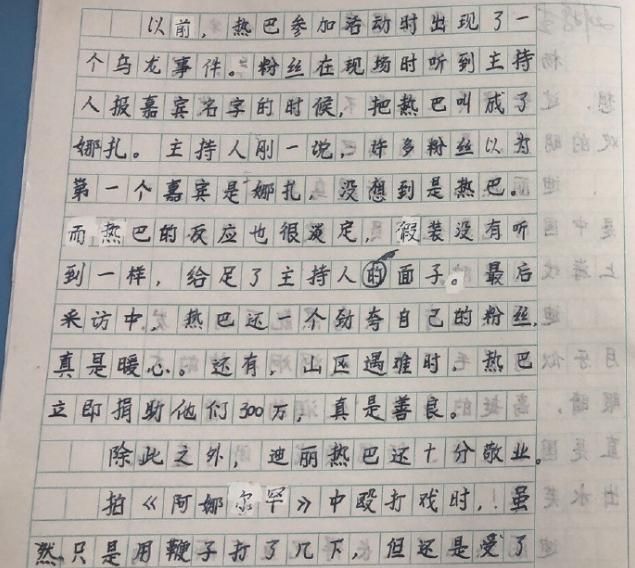 以前，热巴参加活动时出现了一
个乌龙事件。粉丝在现场时听到主持
人报嘉宾名字的时候，把热巴叫成了
娜扎。主持人刚一说，许多粉丝以为
第一个嘉宾是娜扎，没想到是热巴。
而热巴的反应也很淡定，假装没有听
到一样，给足了主持人的面子。最后
采访中，热巴还一个劲夸自己的粉丝，
真是暖心。还有，山区遇难时，热巴
立即捐助他们300万，真是善良。
除此之外，迪丽热巴还十分敬业。
拍《阿娜尔罕》中殴打戏时，虽
然只是用鞭子打了几下，但还是受了